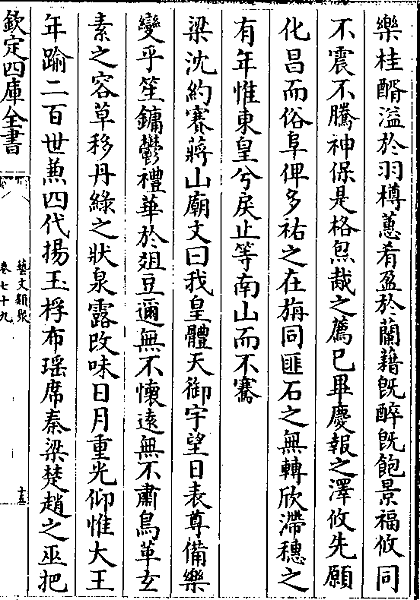 樂桂酳溢於羽樽蕙肴盈於蘭藉旣醉旣飽景福攸同
不震不騰神保是格炰胾之薦已畢慶報之澤攸先願
化昌而俗阜俾多祐之在旃同匪石之無轉欣滯穗之
有年惟東皇兮戾止等南山而不騫
梁沈約賽蔣山廟文曰我皇體天御宇望日表尊備樂
變乎笙鏞鬱禮華於俎豆邇無不懷遠無不肅鳥革玄
素之容草移丹綠之狀泉露改味日月重光仰惟大王
年踰二百世兼四代揚玉桴布瑶席秦梁楚趙之巫把
欽定四庫全書
藝文類聚
卷七十九